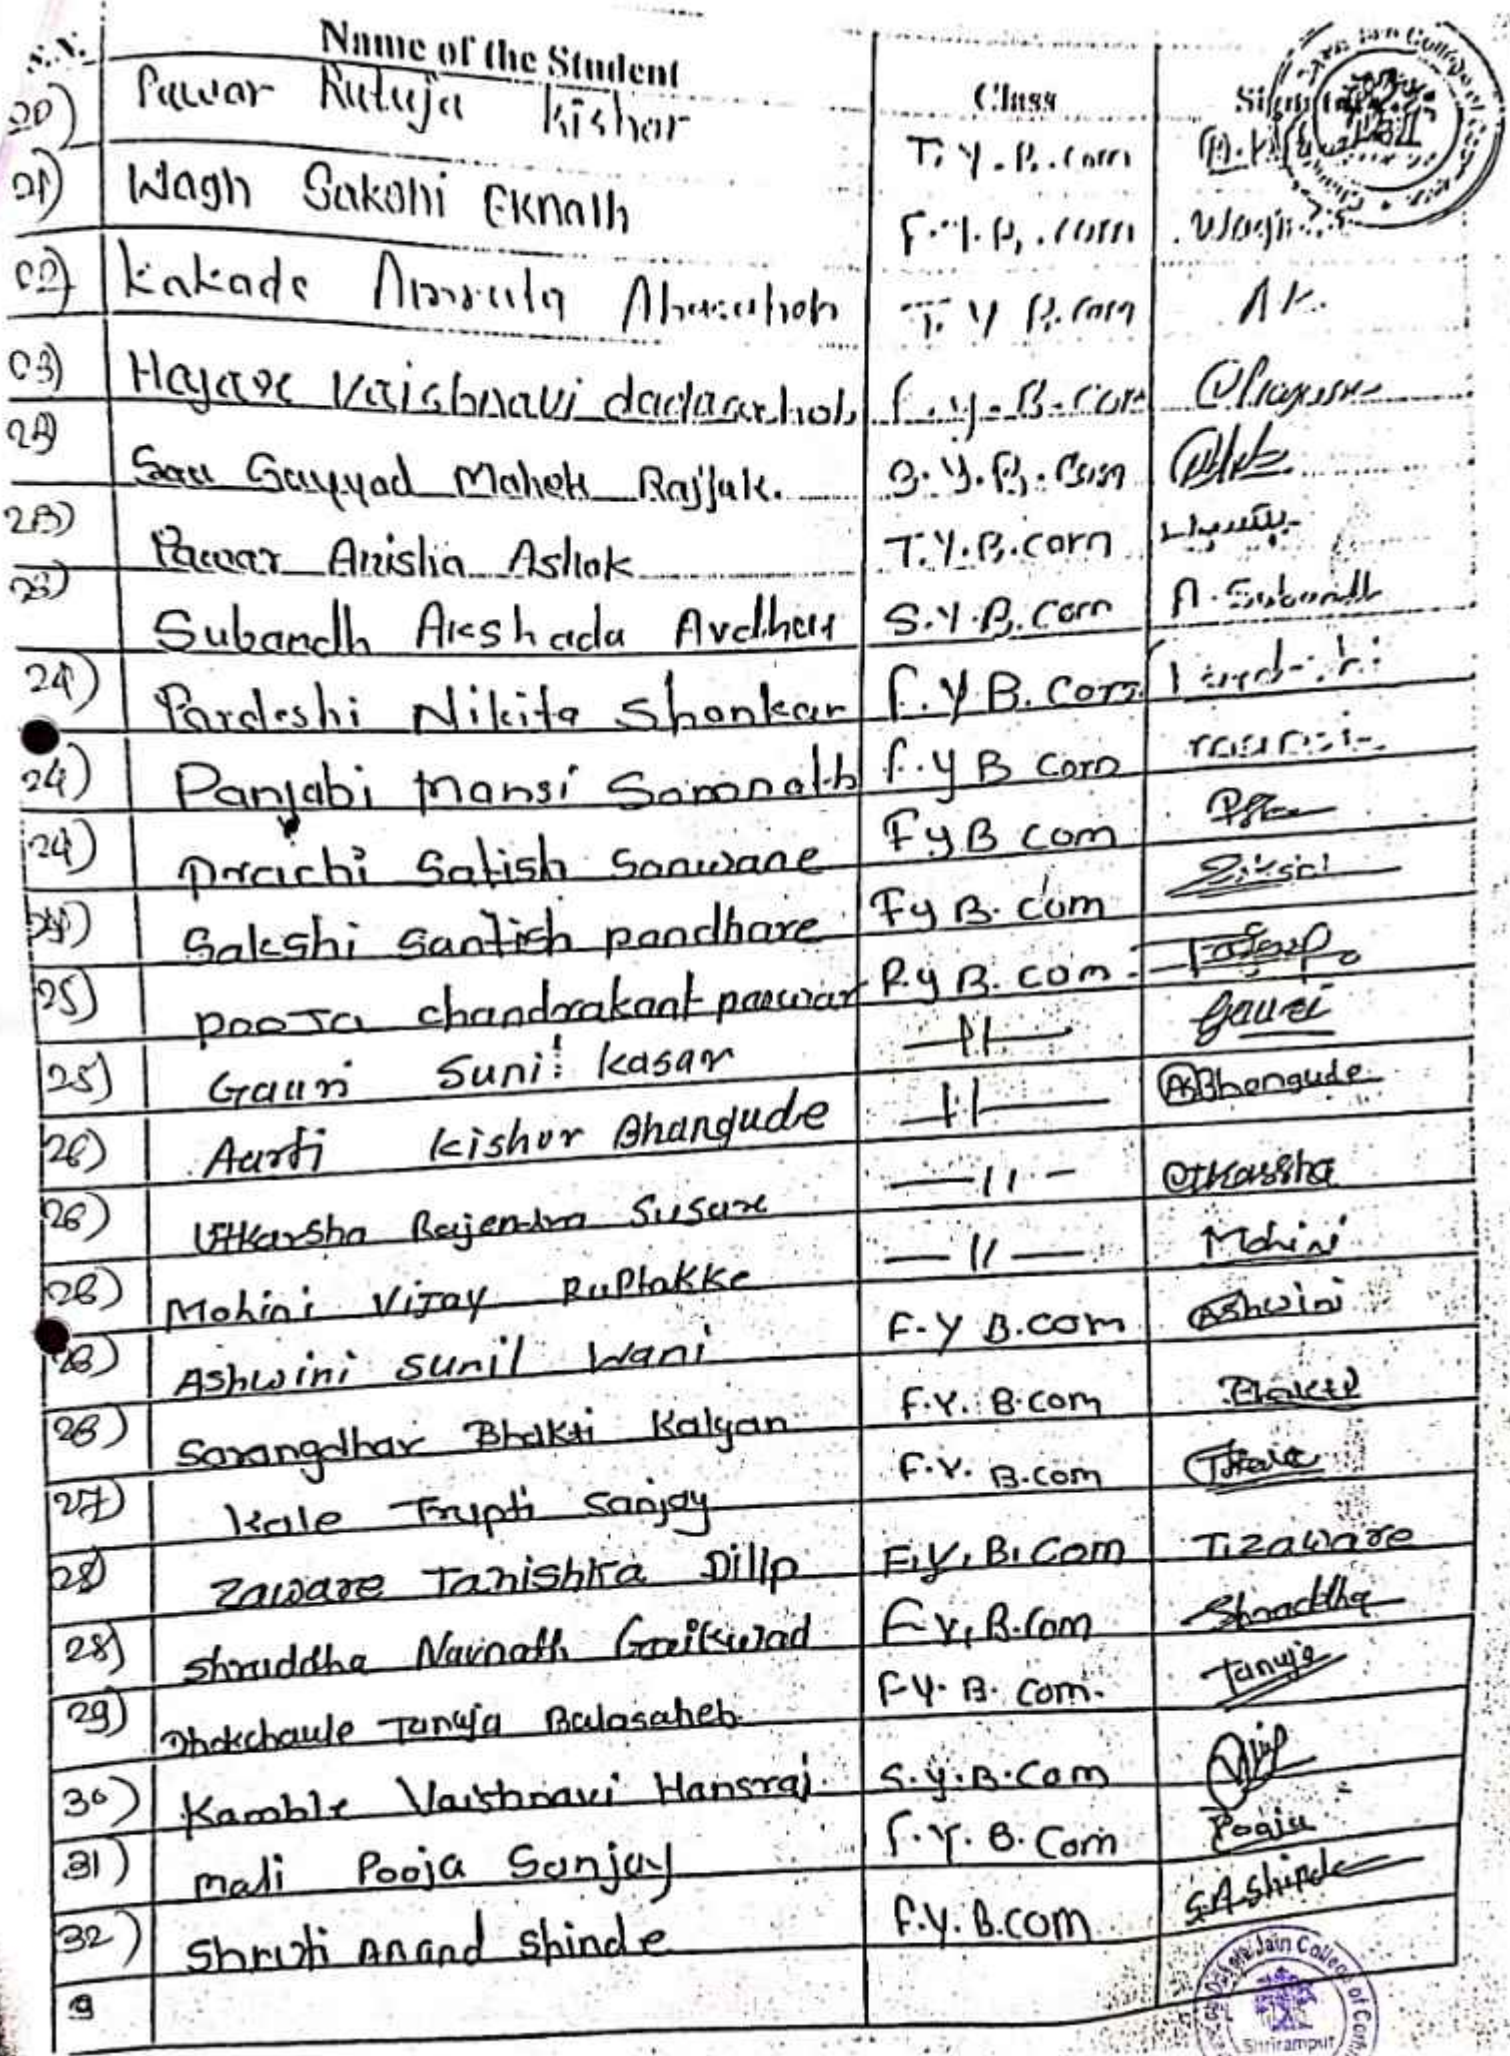 S.N. Name of the Student Class
20) Pawar Rutuja Kishor T.Y.B.com
21) Wagh Sakshi Eknath F.Y.B.com Wagh
02) Kakade Amruta T.Y B.com A.K.
03) Hajare Vaishnavi dadasaheb F.y.B.com
Sayyad Mahek Rajjak. S.Y.B.Com
23) Pawar Anisha Ashok T.Y.B.com
23) Subandh Akshada Avdhut S.Y.B.com A. Subandh
24) Pardeshi Nikita Shankar F.Y B.Com
24) Panjabi Mansi Somnath F.y B com
24) Prachi Satish Sonwane F y B com
Sakshi Santish pandhare Fy B. com
25) Pooja chandrakant pawar F.y B. com
25) Gauri Sunil kasar —11— Gauri
26) Aarti Kishor Bhangude —11— ABhangude
26) Utkarsha Rajendra Susare —11— Utkarsha
26) Mohini Vijay —11— Mohini
Ashwini Sunil Wani F.Y B.com Ashwini
26) Sarangdhar Bhakti Kalyan F.Y. B.com Bhakti
27) Kale Trupti Sanjay F.Y. B.com
28) Zaware Tanishka Dilip F.Y.B.Com T.Zaware
28) Shraddha Navnath Gaikwad F.Y.B.Com Shraddha
29) Dhokchaule Tanuja Balasaheb F.Y. B. Com. Tanuja
30) Kamble Vaishnavi Hansraj. S.y.B.Com
31) Mali Pooja Sanjay F.Y. B. Com Pooja
32) Shruti Anand Shinde F.Y.B.com S.A Shinde
9
Jain College of
Shrirampur